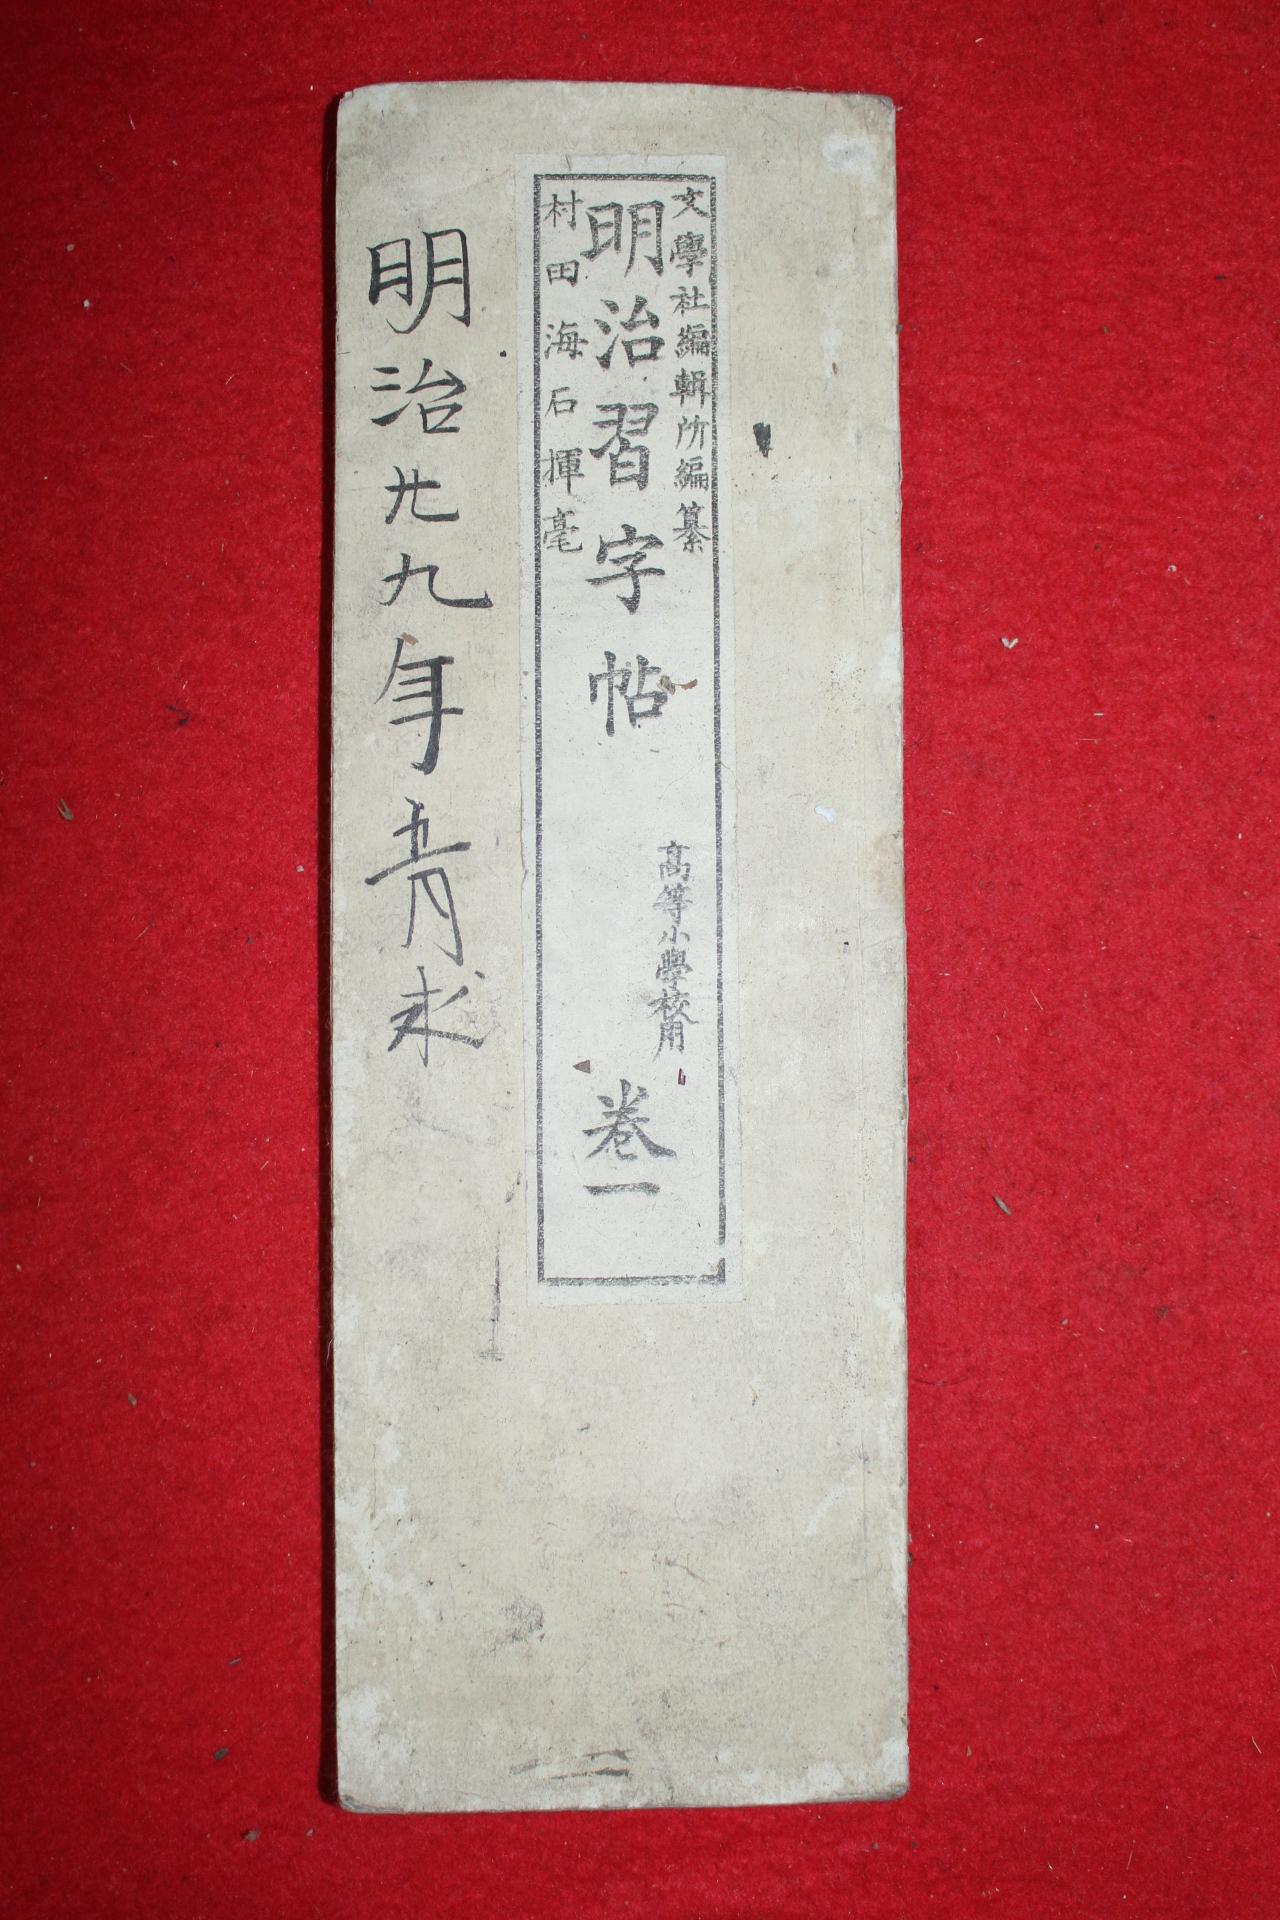 文學社編輯所編纂
明治習字帖
高等小學校用
卷一
村田海石揮毫
明治廿九年五月求